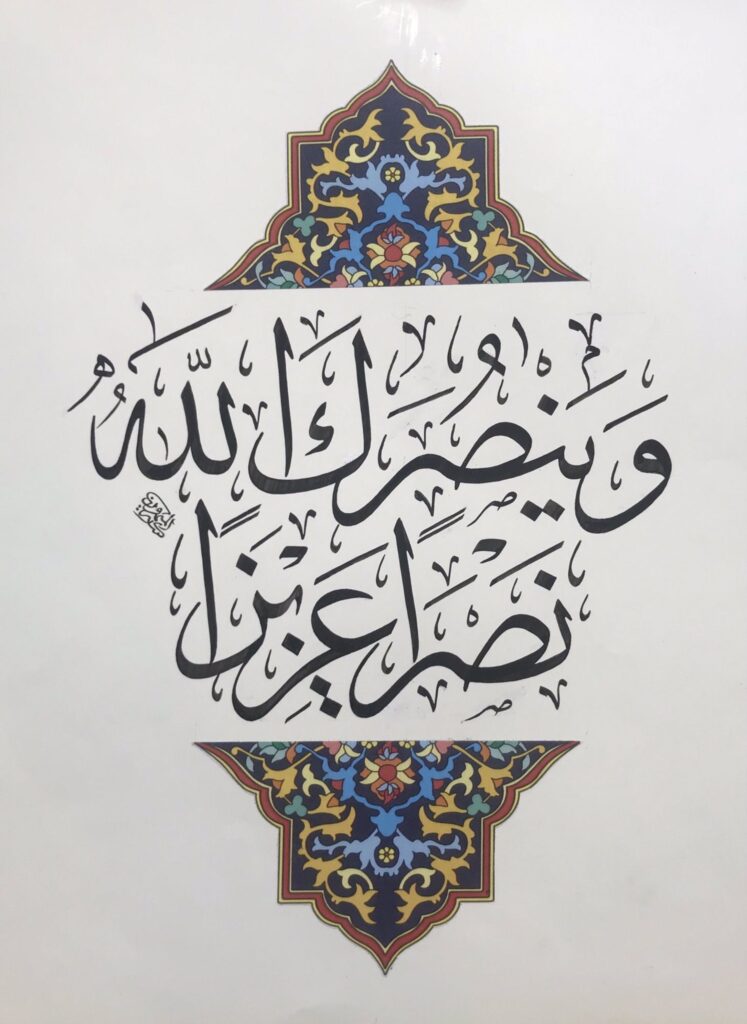 وَيَنْصُرَكَ اللَّهُ
نَصْرًا عَزِيزًا